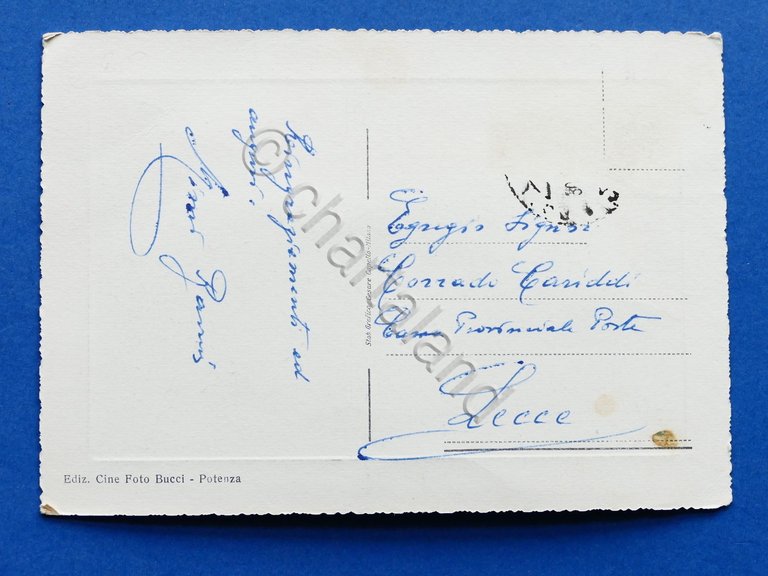 Ringraziamenti ed
auguri.
Egregio Signor
Corrado Cariddi
Provinciale Poste
Lecce
Stab. Grafico Cesare Capello - Milano
Ediz. Cine Foto Bucci - Potenza
© chartaland